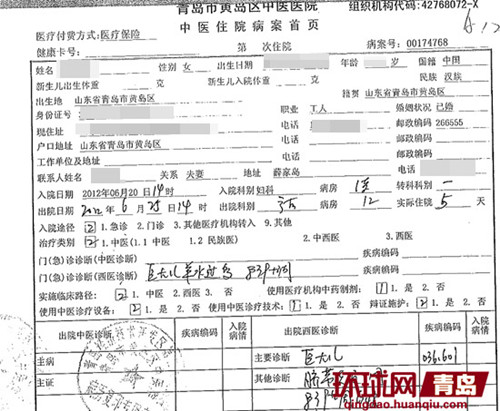 青岛市黄岛区中医医院
组织机构代码:42768072-X
医疗付费方式:医疗保险
中医住院病案首页
健康卡号: 第 次住院 病案号:00174768
姓名 性别 女 出生日期 年龄 岁 国籍 中国
新生儿出生体重 克 新生儿入院体重 克 民族 汉族
出生地 山东省青岛市黄岛区 籍贯 山东省青岛市黄岛区
身份证号 职业 工人 婚姻状况 已婚
现住址 电话 邮政编码 266555
户口地址 山东省青岛市黄岛区 电话 邮政编码
工作单位及地址 电话 邮政编码
联系人姓名 关系 夫妻 地址 薛家岛 电话
入院日期 2012年06月20日14时 入院科别 妇科 病房 转科科别 一
出院日期 2012年6月25日14时 出院科别 病房 12 实际住院 5 天
入院途径 2 1.急诊 2.门诊 3.其他医疗机构转入 9.其他
治疗类别 2 1.中医(1.1 中医 1.2 民族医) 2.中西医 3.西医
门(急)诊诊断(中医诊断) 疾病编码
门(急)诊诊断(西医诊断) 巨大儿 羊水过多 疾病编码
实施临床路径: 2 1.中医 2.西医 3.否 使用医疗机构中药制剂: 1 1.是 2.否
使用中医诊疗设备: 2 1.是 2.否 使用中医诊疗技术: 1.是 2.否 辩证施护: 2 1.是 2.否
出院中医诊断 疾病编码 入院病情 出院西医诊断 疾病编码 入院病情
主病 主要诊断 巨大儿 036.601
主证 其他诊断
环球网 青岛
qingdao.huanqiu.com